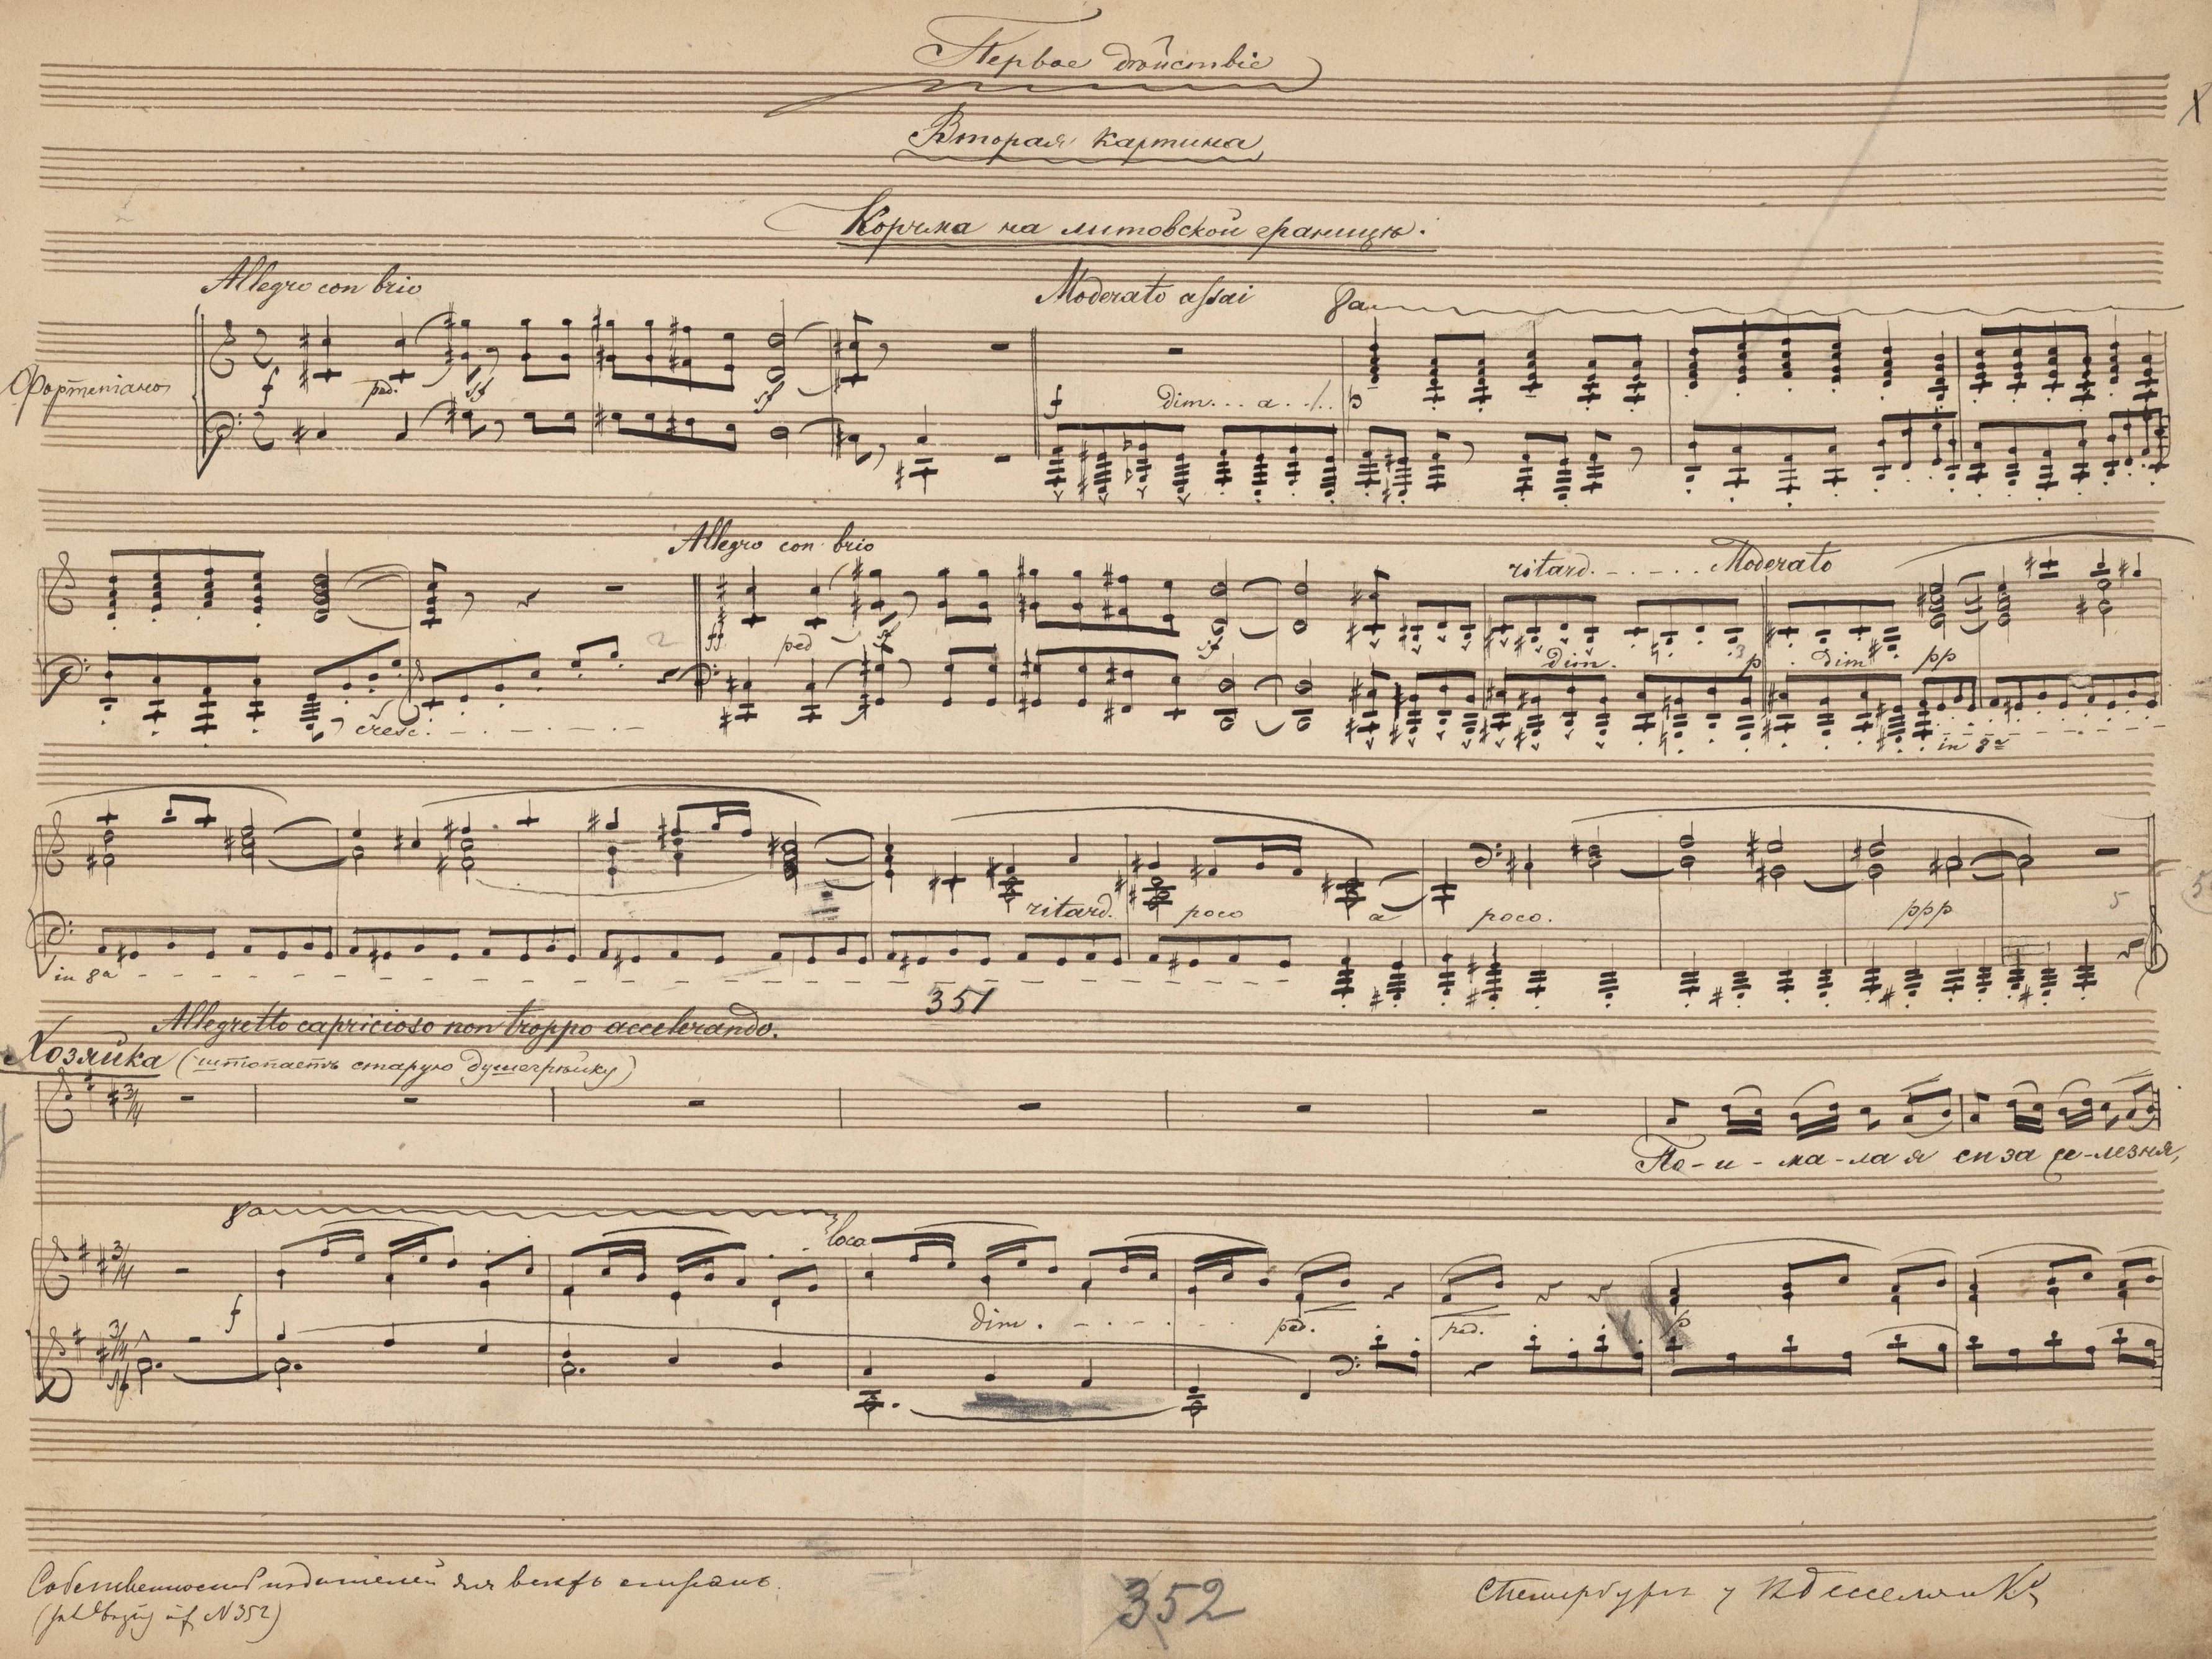 Первое дѣйствіе
Вторая картина
Корчма на литовской границѣ.
Allegro con brio Moderato assai 8a
Фортепіано
f ped. sf sf f dim... a... p
Allegro con brio ritard. Moderato
ff ped sf sf dim. p dim pp
cresc. in 8a
ritard. poco a poco. ppp 5
in 8a
351
Allegretto capricioso non troppo accelerando.
Хозяйка (штопаетъ старую душегрѣйку)
3/4
По-и-ма-ла я сиза се-лезня,
8a loco
3/4 f dim. ped. ped. p
3/4 sf
Собственность издателей для всѣхъ странъ.
N 352)
352
СПетербургъ у В Бесселя и К